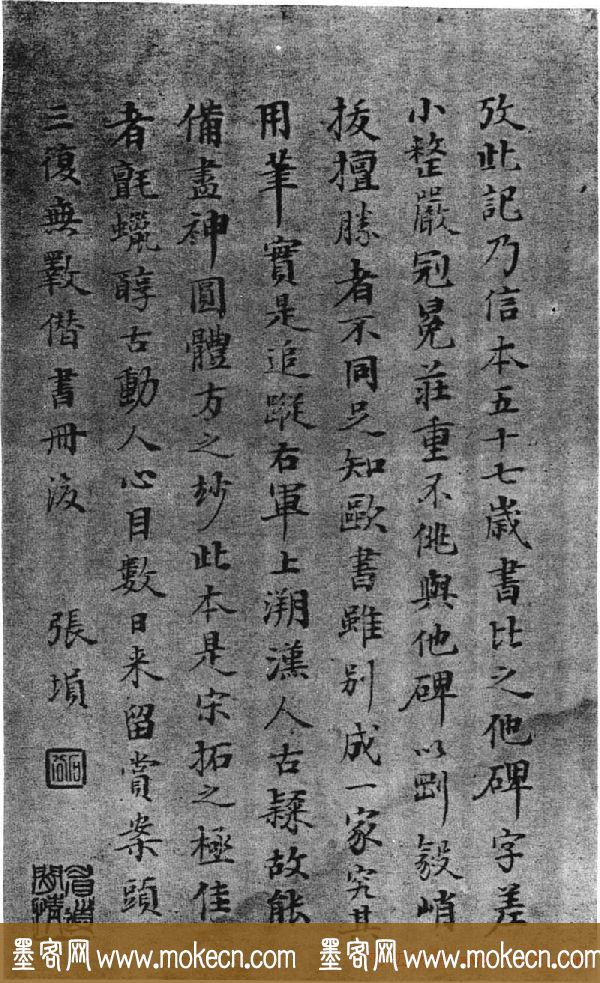 攷此記乃信本五十七歲書比之他碑字差
小整嚴冠冕莊重不佻與他碑以劌毅峭
拔擅勝者不同足知歐書雖別成一家究其
用筆實是追蹤右軍上溯漢人古隸故能
備盡神圓體方之妙此本是宋拓之極佳
者氈蠟醇古動人心目數日来留賞案頭
三復無斁偕書冊後
張塤
墨客网 www.mokecn.com 墨客网 www.mokecn.com